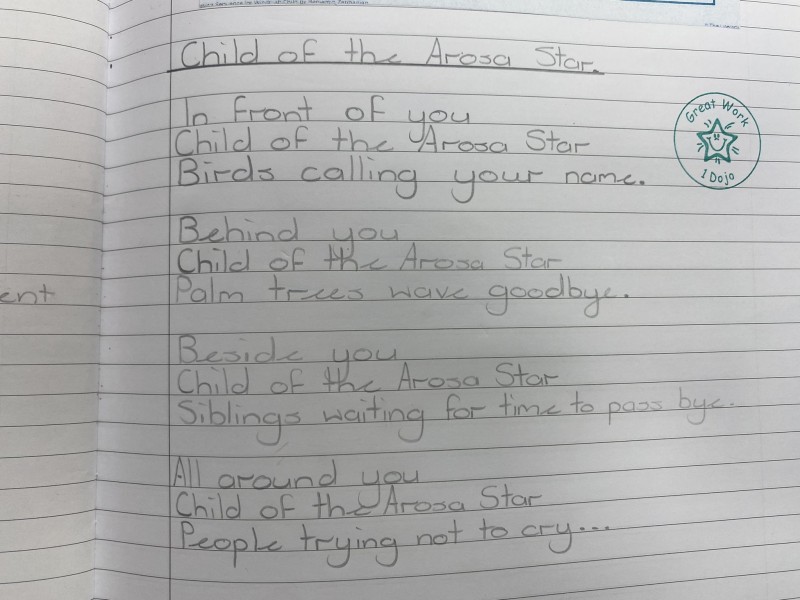 Child of the Arosa Star.
In front of you
Child of the Arosa Star
Birds calling your name.
Great Work
1 Dojo
Behind you
Child of the Arosa Star
Palm trees wave goodbye.
ent
Beside you
Child of the Arosa Star
Siblings waiting for time to pass bye.
All around you
Child of the Arosa Star
People trying not to cry...